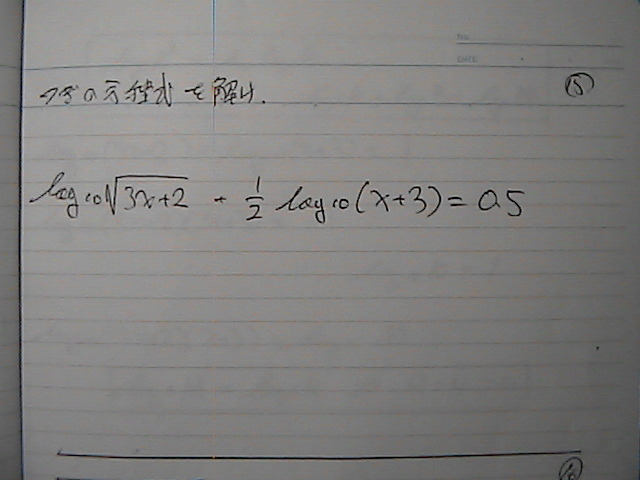 NO.
DATE
次の方程式を解け.
⑮
log₁₀√3x+2 + 1/2 log₁₀(x+3) = 0.5